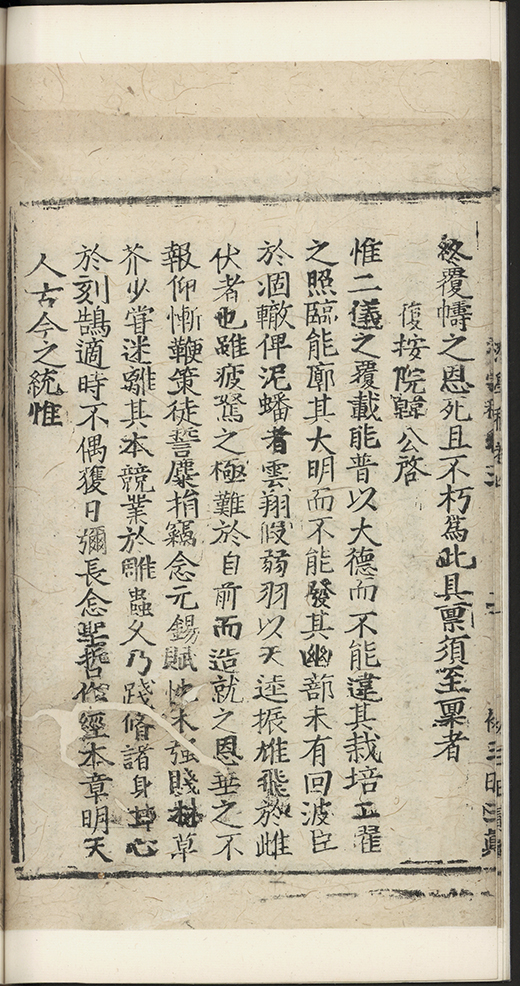 終覆幬之恩死且不朽為此具稟須至稟者
復按院韓公啓
惟二儀之覆載能普以大德而不能違其栽培二曜
之照臨能廓其大明而不能發其幽蔀未有回波臣
於涸轍俾泥蟠者雲翔假弱羽以天逵振雄飛於雌
伏者也雖疲駑之極難於自前而造就之恩垂之不
報仰慚鞭策徒誓麋捐竊念元錫賦性木強賤林草
芥少嘗迷雛其本競業於雕蟲久乃踐脩諸身心
於刻鵠適時不偶獲日彌長念聖哲作經本章明天
人古今之統惟